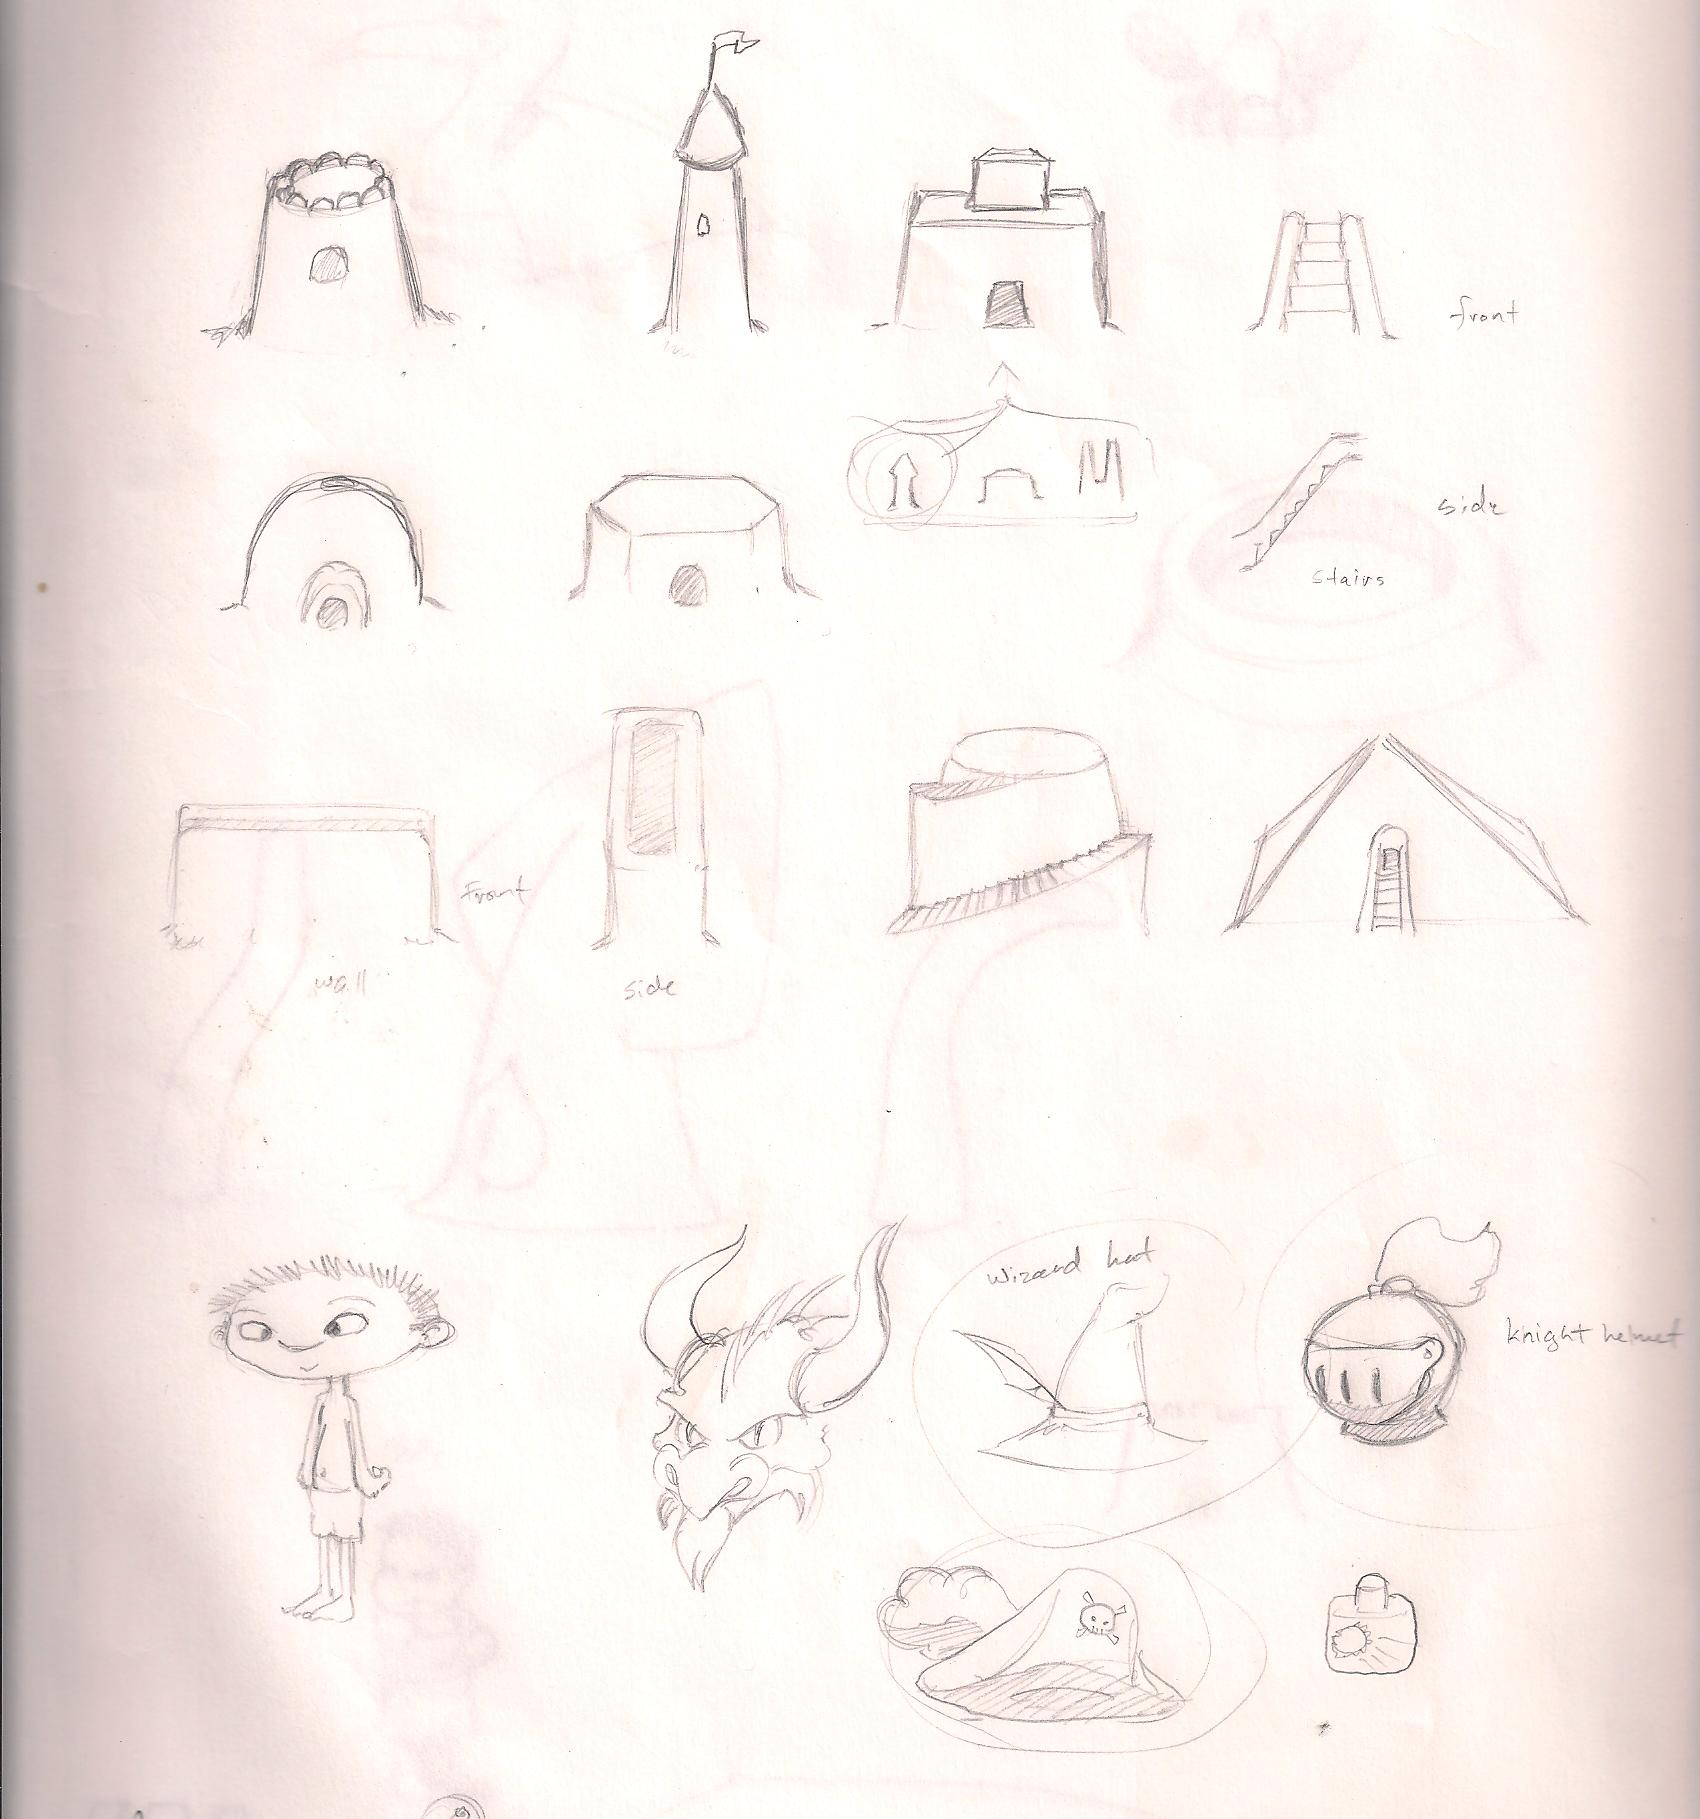 front
side
stairs
Front
wall
side
wizard hat
knight helmet